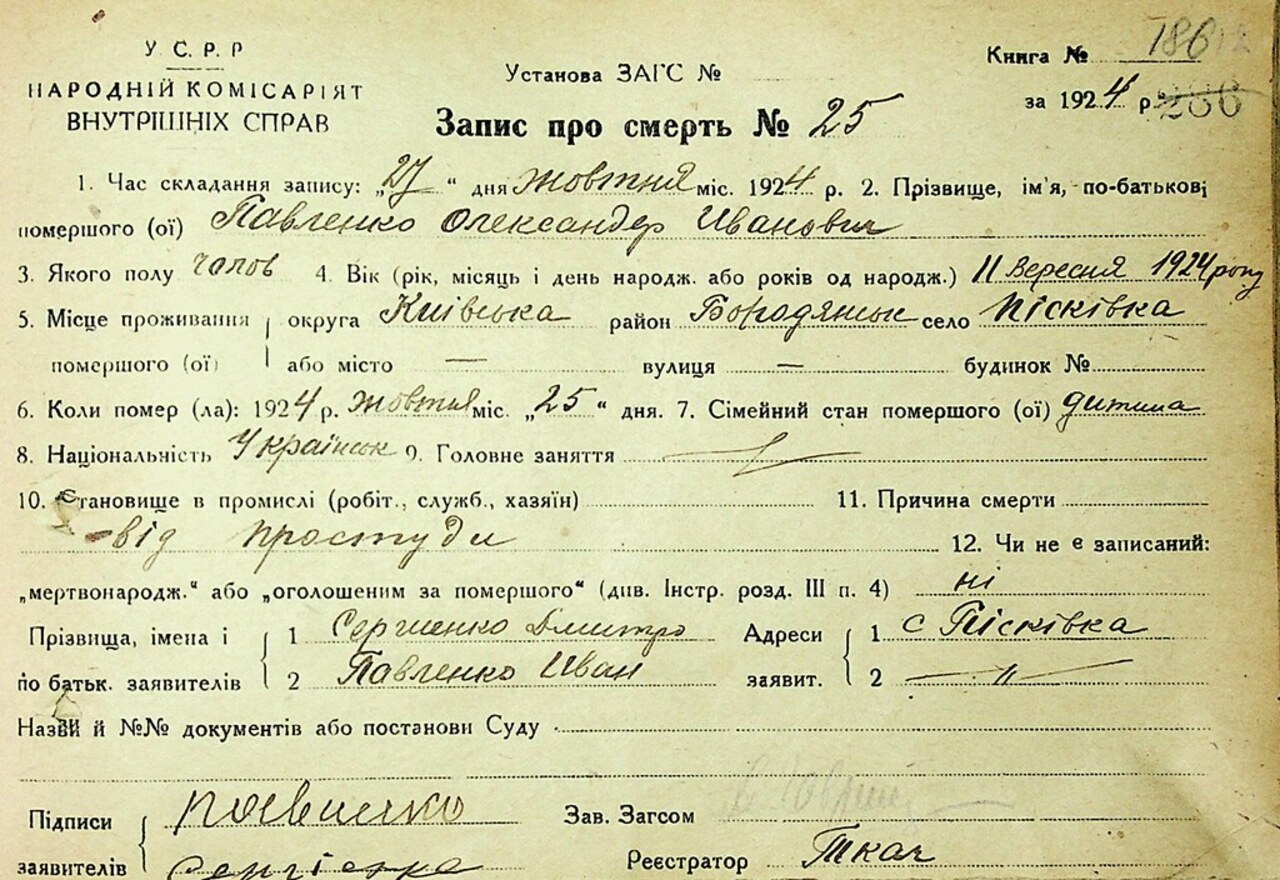 У С. Р. Р
НАРОДНІЙ КОМІСАРІЯТ
ВНУТРІШНІХ СПРАВ
Установа ЗАГС №
Книга № 186
за 1924 р. 286
Запис про смерть № 25
1. Час складання запису: „27“ дня жовтня міс. 1924 р. 2. Прізвище, ім'я, по-батькові
помершого (ої) Павленко Олександер Иванович
3. Якого полу чолов 4. Вік (рік, місяць і день народж. або років од народж.) 11 вересня 1924 року
5. Місце проживання округа Київська район Бородянськ село Пісківка
помершого (ої) або місто — вулиця — будинок №
6. Коли помер (ла): 1924 р. жовтня міс. „25“ дня. 7. Сімейний стан помершого (ої) дитина
8. Національність Українськ 9. Головне заняття
10. Становище в промислі (робіт., служб., хазяїн) 11. Причина смерти
від простуди 12. Чи не є записаний:
„мертвонародж.“ або „оголошеним за помершого“ (див. Інстр. розд. III п. 4) ні
Прізвища, імена і 1 Сергиенко Дмитро Адреси 1 с Пісківка
по батьк. заявителів 2 Павленко Иван заявит. 2 — „ —
Назви й №№ документів або постанови Суду
Підписи Павленко Зав. Загсом
заявителів Сергієнко Реєстратор Ткач